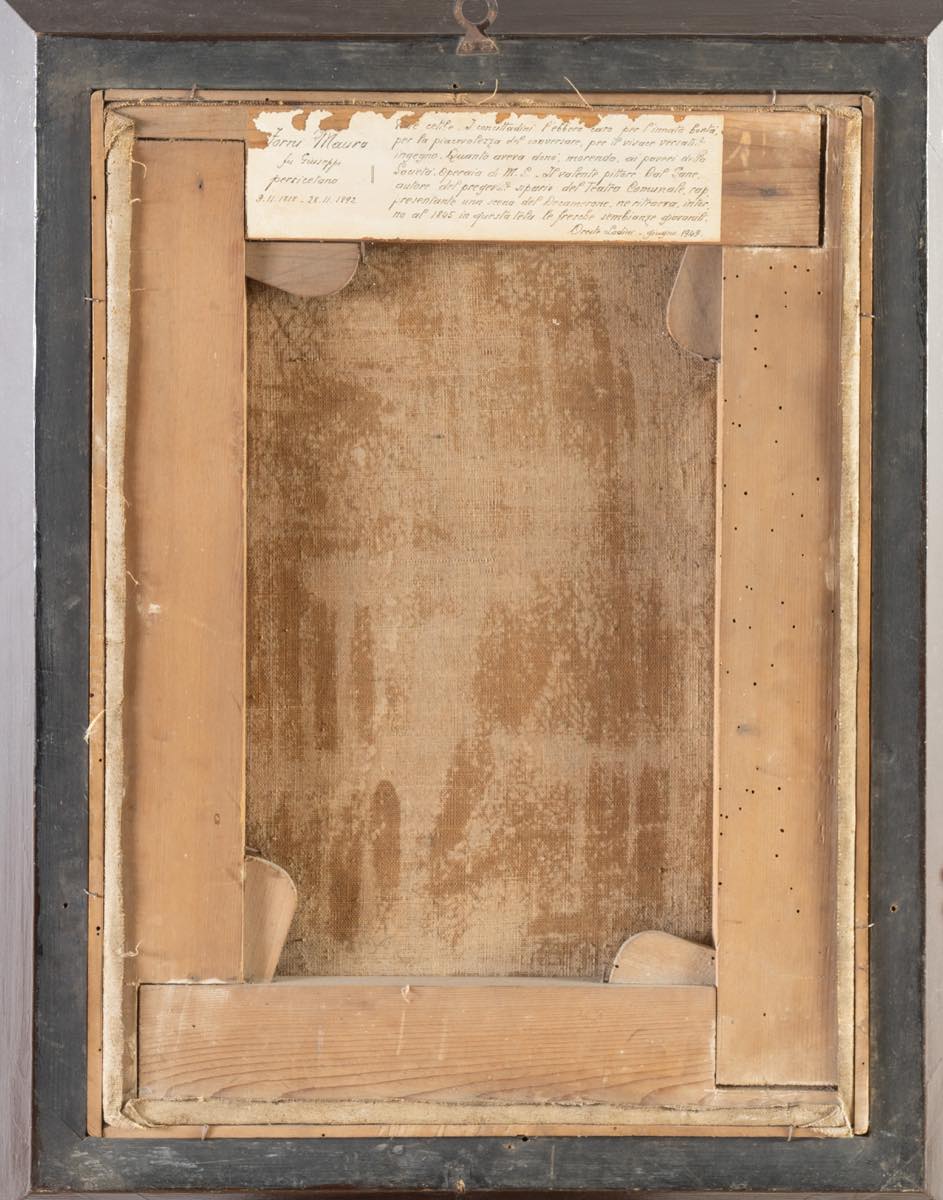 Forni Mauro
fu Giuseppe
persicetano
9.11.1818 - 28.11.1892
celibe. I concittadini l'ebbero caro per l'innata bontà,
per la piacevolezza del conversare, per il vivace versatile
ingegno. Quanto aveva donò, morendo, ai poveri della
Società Operaia di M. S. Il valente pittore Dal Pane,
autore del pregevole sipario del Teatro Comunale, rap=
presentante una scena del Decamerone, ne ritraeva, intor=
no al 1845 in questa tela le fresche sembianze giovanili.
Oreste Lodini - giugno 1949.